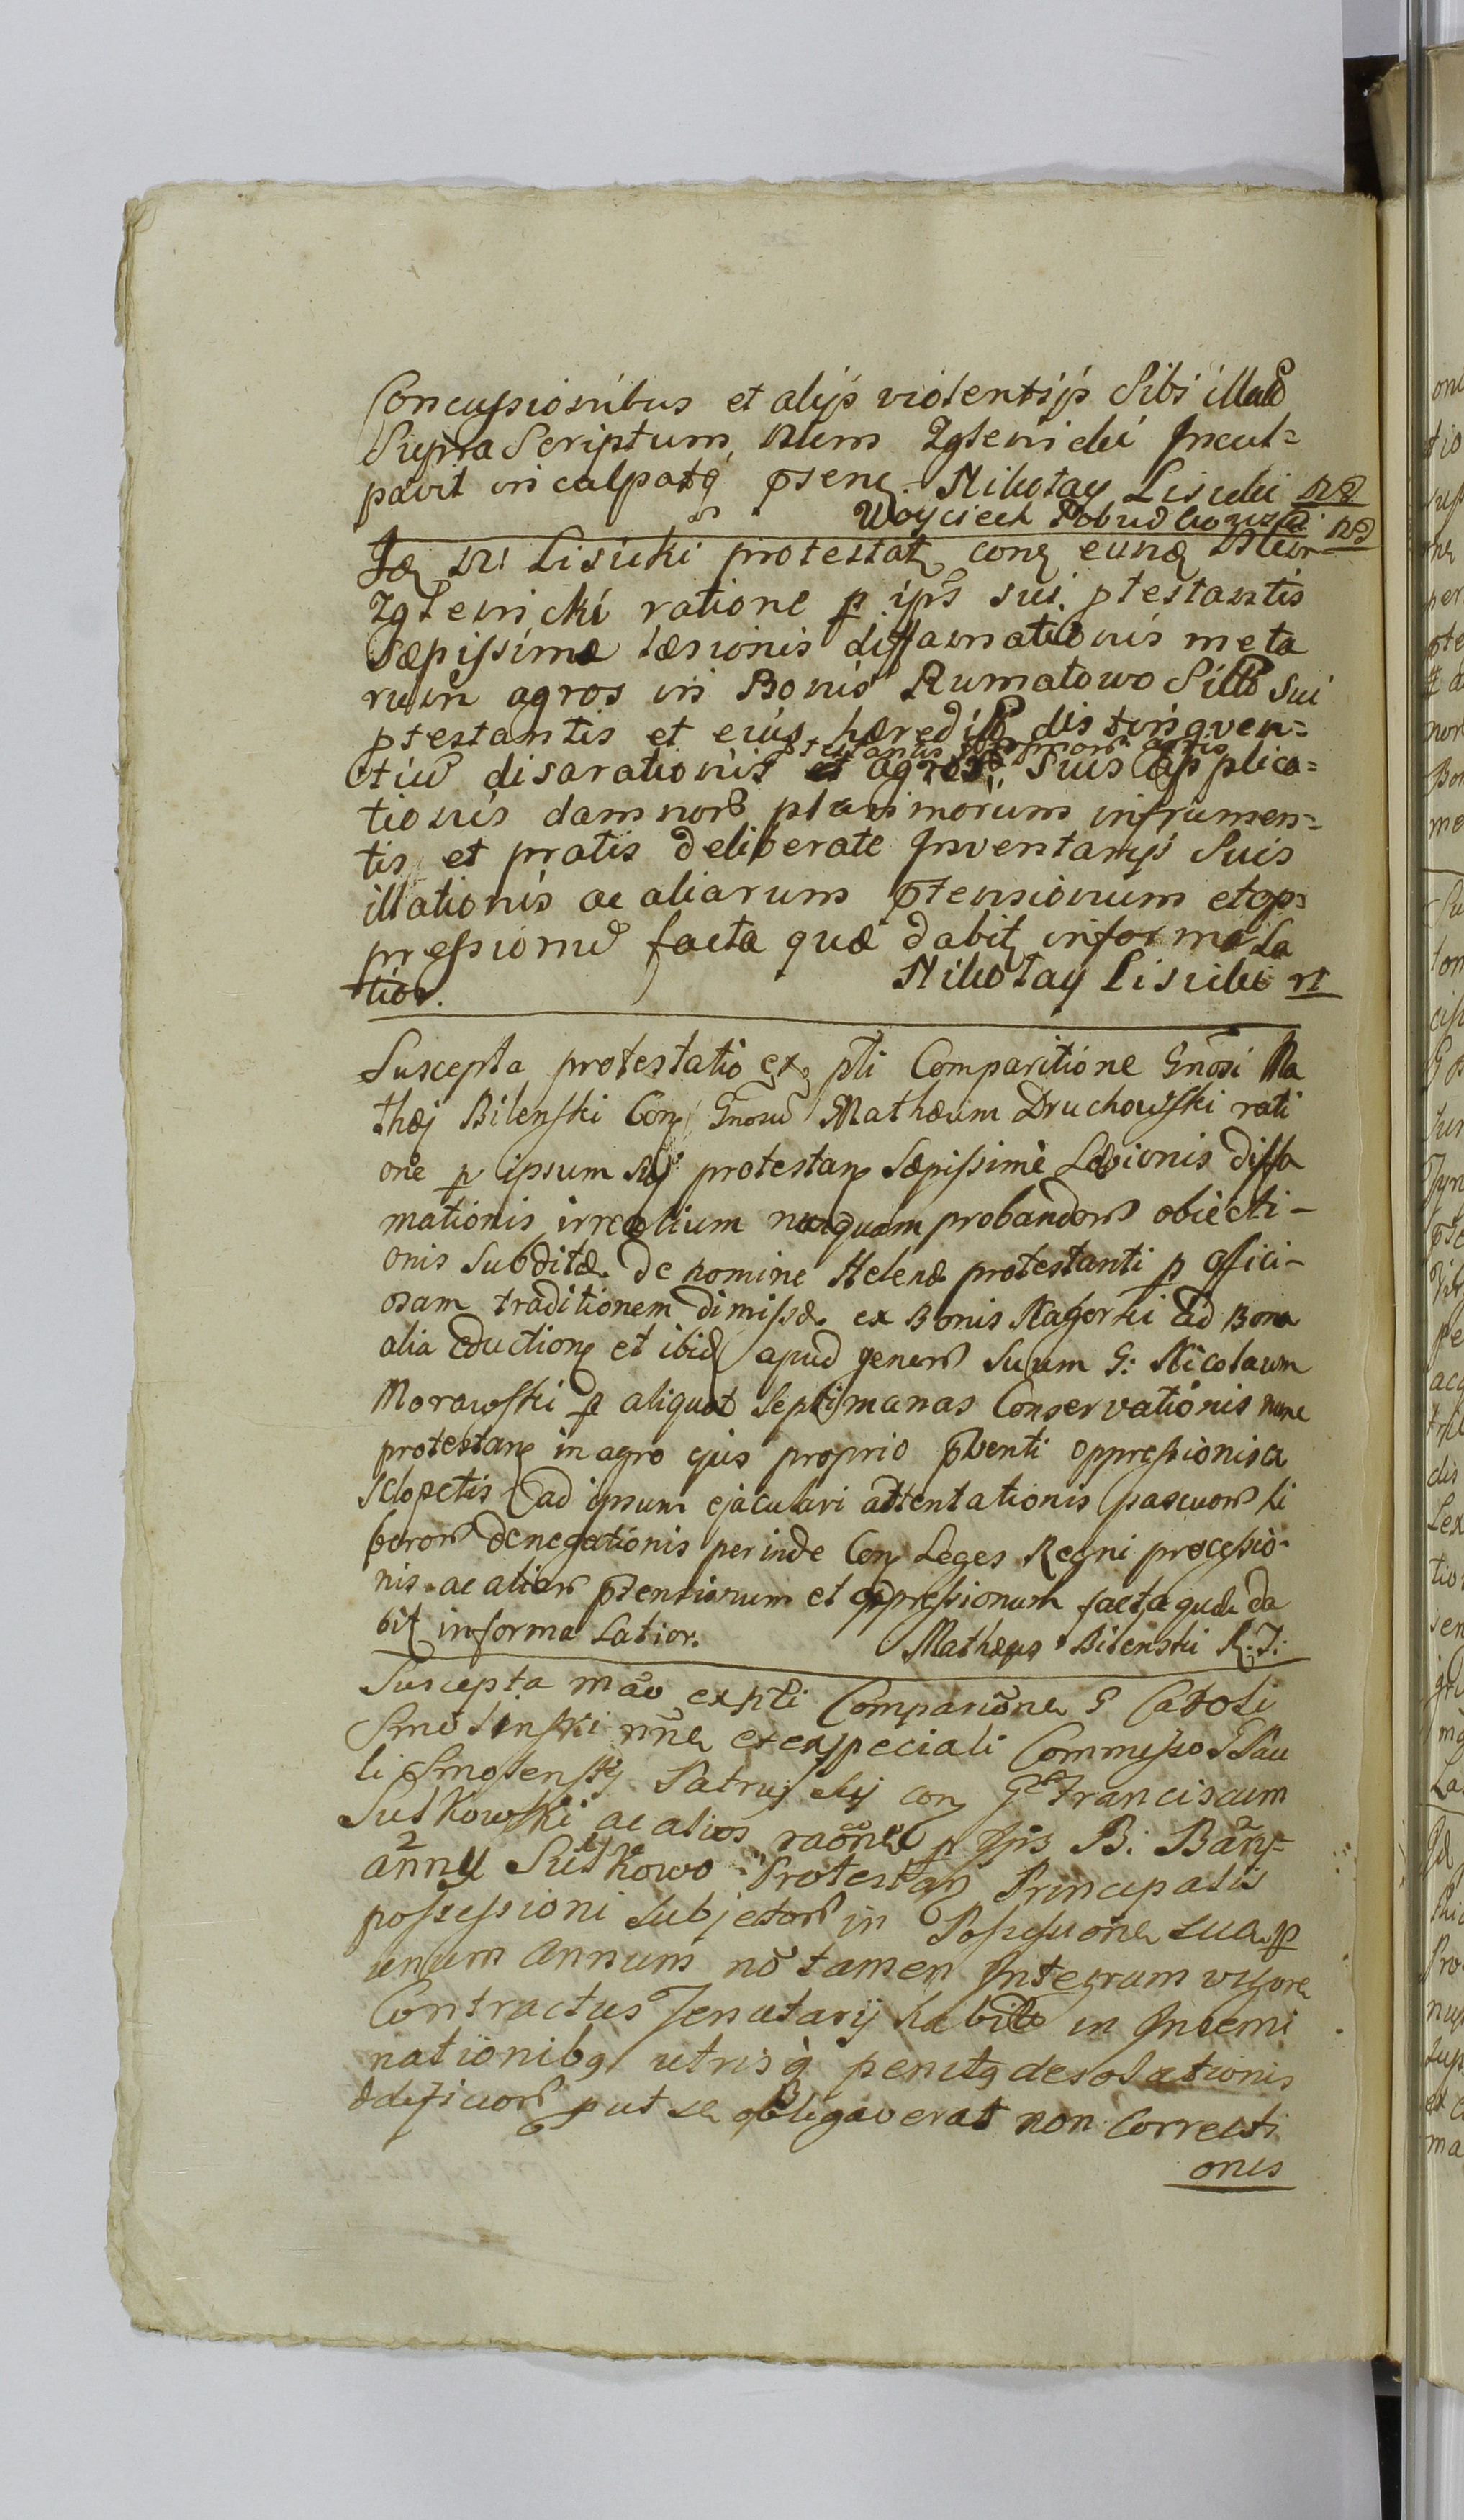 Concussionibus et alijs violentijs Sibi illatis
Supra Scriptum, Zglenicki Incul-
pavit inculpatq Mikołay Lisicki
Woyciech
Lisicki protestatr conr eund
Zglenicki ratione p ips sui ptestantis
Sæpissimæ læsionis diffamationis meta
rum agros in Bonis Rumatowo Sitis sui
ptestantis et ejus hæredit distingven-
tiu disarationis agros suis applica-
tionis damnor plurimorum in frumen-
tis et pratis deliberate Inventarijs Suis
illationis ac aliarum ptensionum et op-
pressionu facta quæ dabitr in forma La
tior. Mikołay Lisicki
Suscepta protestatio ex pti Comparitione Gnosi Ma
thæi Bilenski Conr Gnosu Mathæum Druchowski rati
one p ipsum sui protestan Sæpissimè Læsionis diffa
mationis irrealium nusquam probandor obiecti-
onis Subditæ de nomine Helenæ protestanti p offici-
osam traditionem dimissæ ex Bonis Nagorki ad Bona
alia eductione et ibid apud generu suum G: Nicolaum
Morawski p aliquot septimanas Conservationis nunc
protestan in agro ejus proprio pventi oppressionis a
sclopetis ad ipsum ejaculari attentationis pascuor li
beror denegationis perinde Con Leges Regni processio-
nis ac aliar ptensionum et oppressionum facta quæ da
bit in forma Latior. Mathæus Bilenski
Suscepta ex pti Comparione G Caroli
Smolinski et ex speciali Commisso G Pau
li Smolenskij Patruj sui con G Franciscum
Sutkowski ac alios raone p Ips B:
Sutkowo Protestan Principalis
possessioni subjector in Possessione sua p
unum annum no tamen Integrum vigore
Contractus Tenutarij habito in Insemi
nationibq utrisq penitq desolationis
ædificior put se obligaverat non Correcti
onis